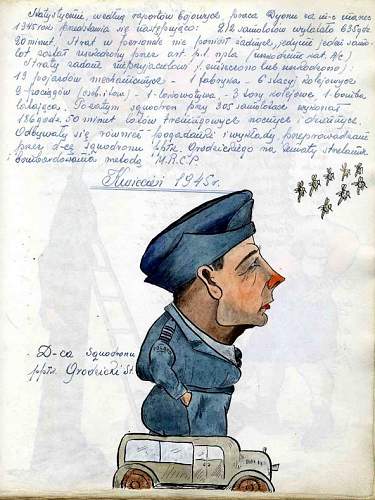 Statystycznie, według raportów bojowych praca Dyonu za m-c marzec
1945 rok przedstawia się następująco: 212 samolotów wylatało 635 godz.
20 minut. Strat w personelu nie poniósł żadnych, jedynie jeden samo-
lot został uszkodzony przez art. p.l. npla
Straty zadane nieprzyjacielowi (zniszczono lub uszkodzono)
19 pojazdów mechanicznych - 1 fabryka - 6 stacyj kolejowych
1 lokomotywa - 3 tory kolejowe, 1 bomba
latająca. Pozatym squadron przy 305 samolotach wykonał
186 godz. 50 minut lotów treningowych nocnych i dziennych.
Odbywały się również pogadanki i wykłady, przeprowadzane
przez d-cę squadronu ppłk. Grodzickiego na tematy strzelania
i bombardowania metodą "M.R.C.P.
Kwiecień 1945 r.
POLAND
D-ca squadronu
ppłk. Grodzicki St.